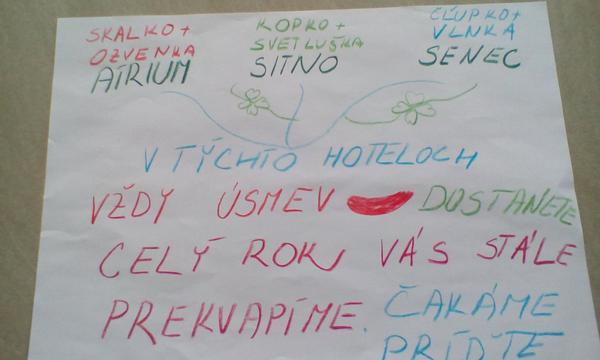 SKALKO+
OZVENKA
ÁTRIUM
KOPKO+
SVETLUŠKA
SITNO
ČĽUPKO+
VLNKA
SENEC
V TÝCHTO HOTELOCH
VŽDY ÚSMEV DOSTANETE
CELÝ ROK VÁS STÁLE
PREKVAPÍME. ČAKÁME
PRÍĎTE